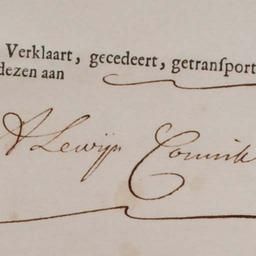 Verklaart, gecedeert, getransport
dezen aan
Lewijn